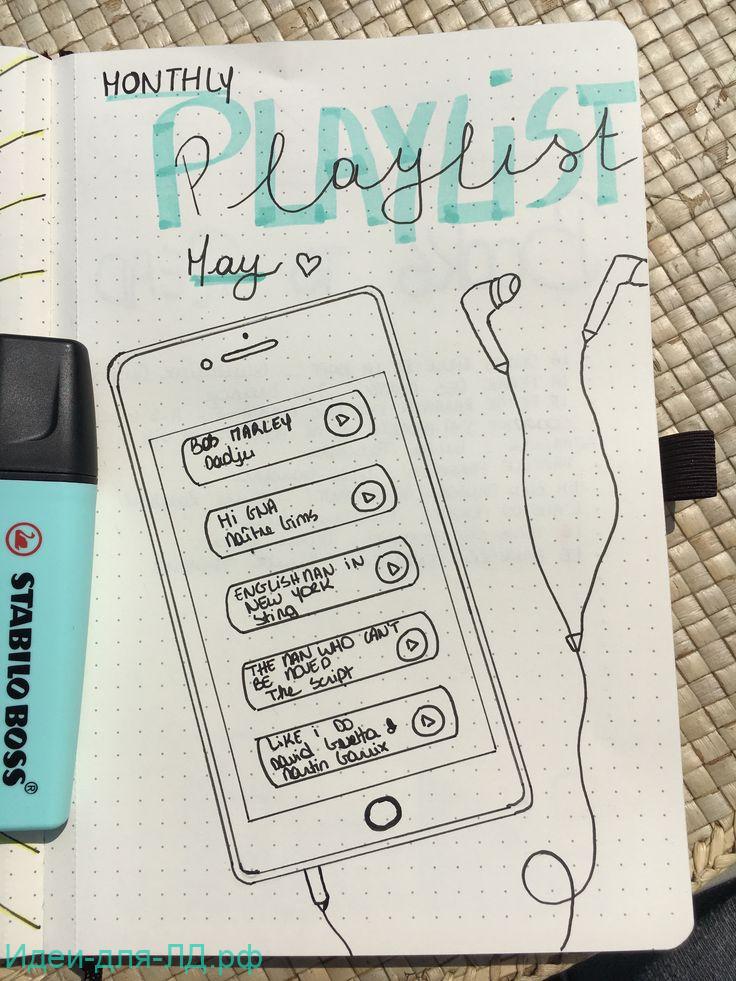 MONTHLY
PLAYLIST
Playlist
May ♡
BOB MARLEY
Dadju
Hi GNA
Maître Gims
ENGLISHMAN IN
NEW YORK
Sting
THE MAN WHO CAN'T
BE MOVED
The Script
LIKE i DO
David Guetta &
Martin Garrix
STABILO BOSS®
Идеи-для-ЛД.рф